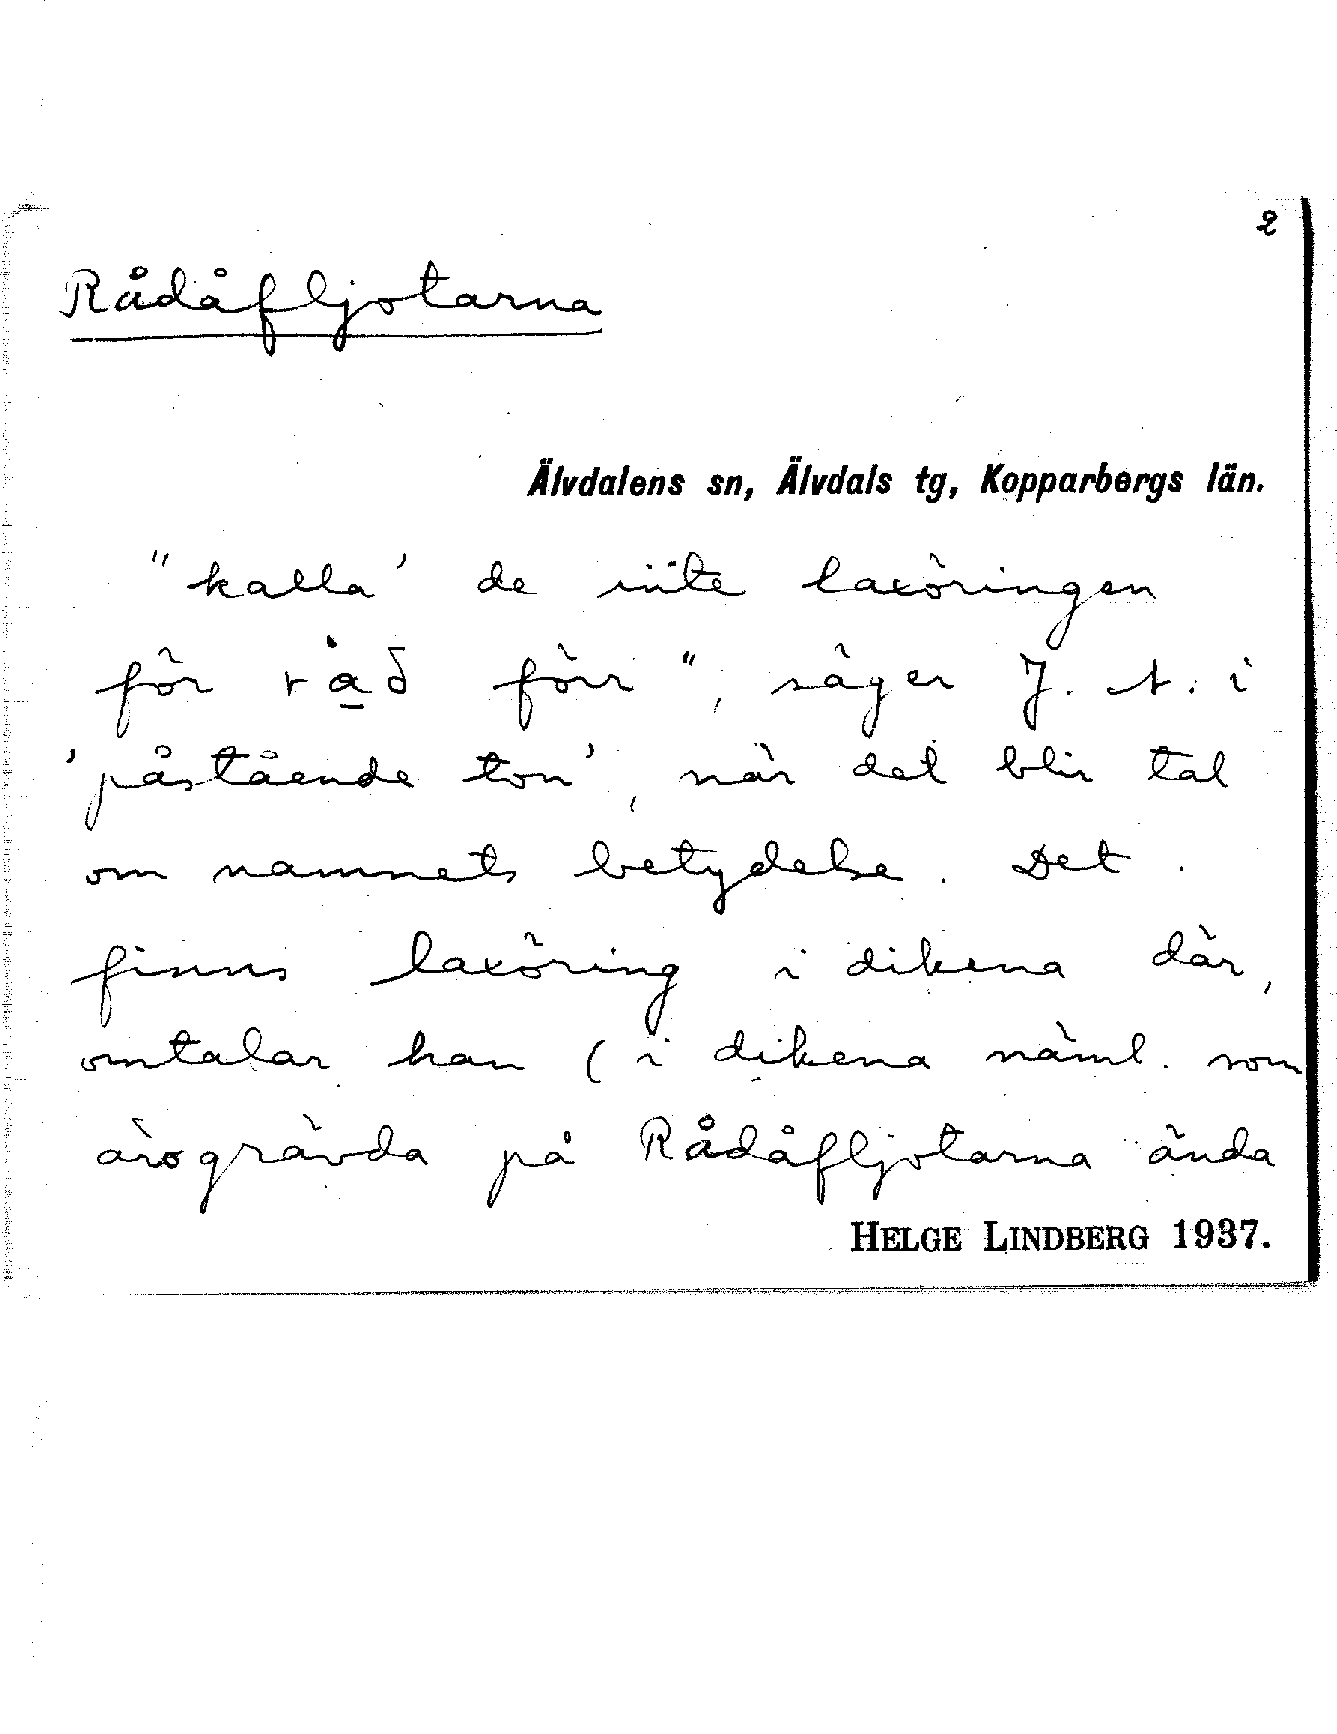 2
Rådåfljotarna
Älvdalens sn, Älvdals tg, Kopparbergs län.
"kalla' de inte laxöringen
för råð förr", säger J. A. i
'påstående ton', när det blir tal
om namnets betydelse. Det
finns laxöring i dikena där,
omtalar han (i dikena näml. som
äro grävda på Rådåfljotarna ända
HELGE LINDBERG 1937.